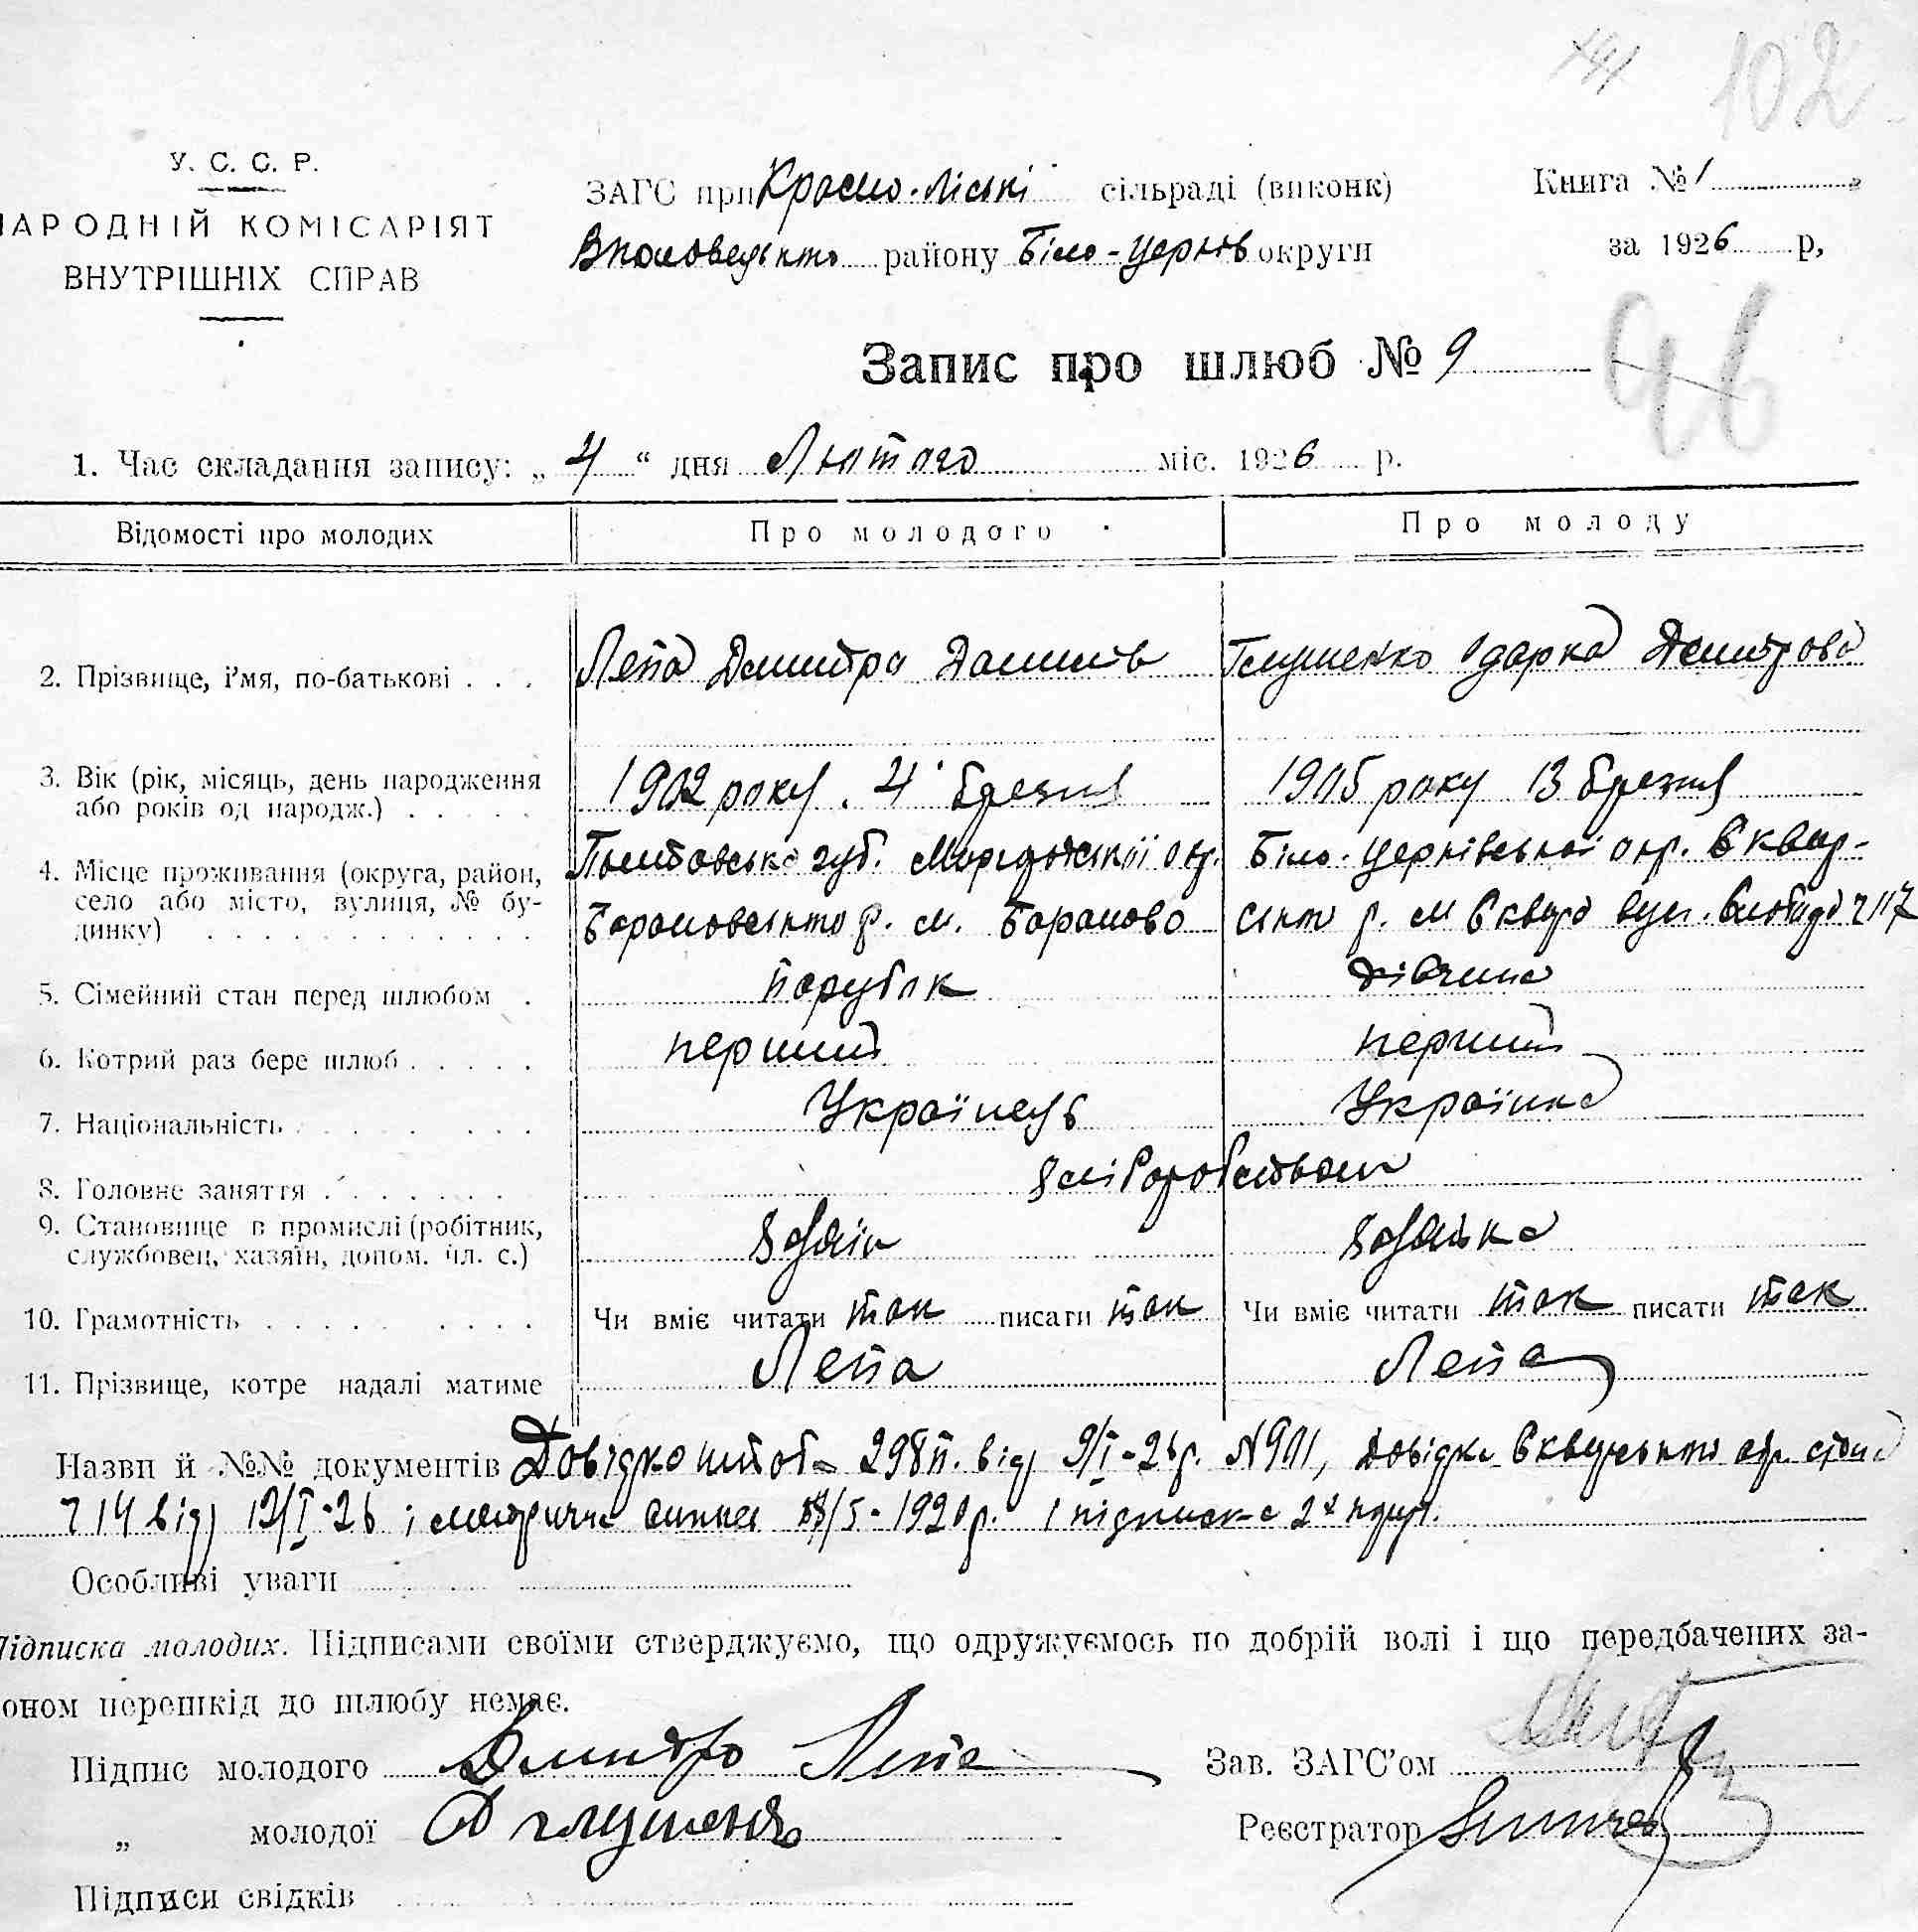 102
У. С. С. Р.
НАРОДНІЙ КОМІСАРІЯТ
ВНУТРІШНІХ СПРАВ
ЗАГС при Красно-лісні сільраді (виконк)
району Біло-Церків округи
Книга № 1
за 1926 р,
Запис про шлюб № 9
46
1. Час складання запису: „ 4 “ дня Лютого міс. 1926 р.
Відомості про молодих Про молодого Про молоду
2. Прізвище, і'мя, по-батькові . . . Лепа Дмитро Данилів Глушенко Одарка Дмитрова
3. Вік (рік, місяць, день народження 1902 року 4 березня 1905 року 13 березня
або років од народж.) . . . . .
4. Місце проживання (округа, район, Полтавська губ. окр. Біло-Церківської окр. Сквир-
село або місто, вулиця, № бу- р. м. Бараново р. м Сквира вул. ч 117
динку) . . . . . . . . . . . .
5. Сімейний стан перед шлюбом . парубок дівчина
6. Котрий раз бере шлюб . . . . . перший перший
7. Національність . . . . . . . Українець Українка
8. Головне заняття . . . . . . . хліборобством
9. Становище в промислі (робітник,
службовец, хазяїн, допом. чл. с.)
10. Грамотність . . . . . . . . . Чи вміє читати так писати так Чи вміє читати так писати так
11. Прізвище, котре надалі матиме Лепа Лепа
Назви й №№ документів Довідка штоба 298 п. від 9/I-26р. N 901, довідка Сквирського
ч 14 від 12/I-26 і метрична 5-1920р. і підписка 2х
Особливі уваги
Підписка молодих. Підписами своїми стверджуємо, що одружуємось по добрій волі і що передбачених за-
коном перешкід до шлюбу немає.
Підпис молодого Дмитро Лепа Зав. ЗАГС'ом
„ молодої Глушенко Реєстратор
Підписи свідків